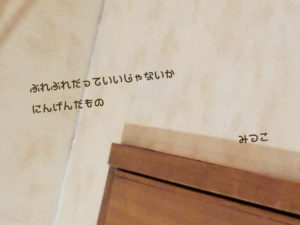 ぶれぶれだっていいじゃないか
にんげんだもの
みつこ